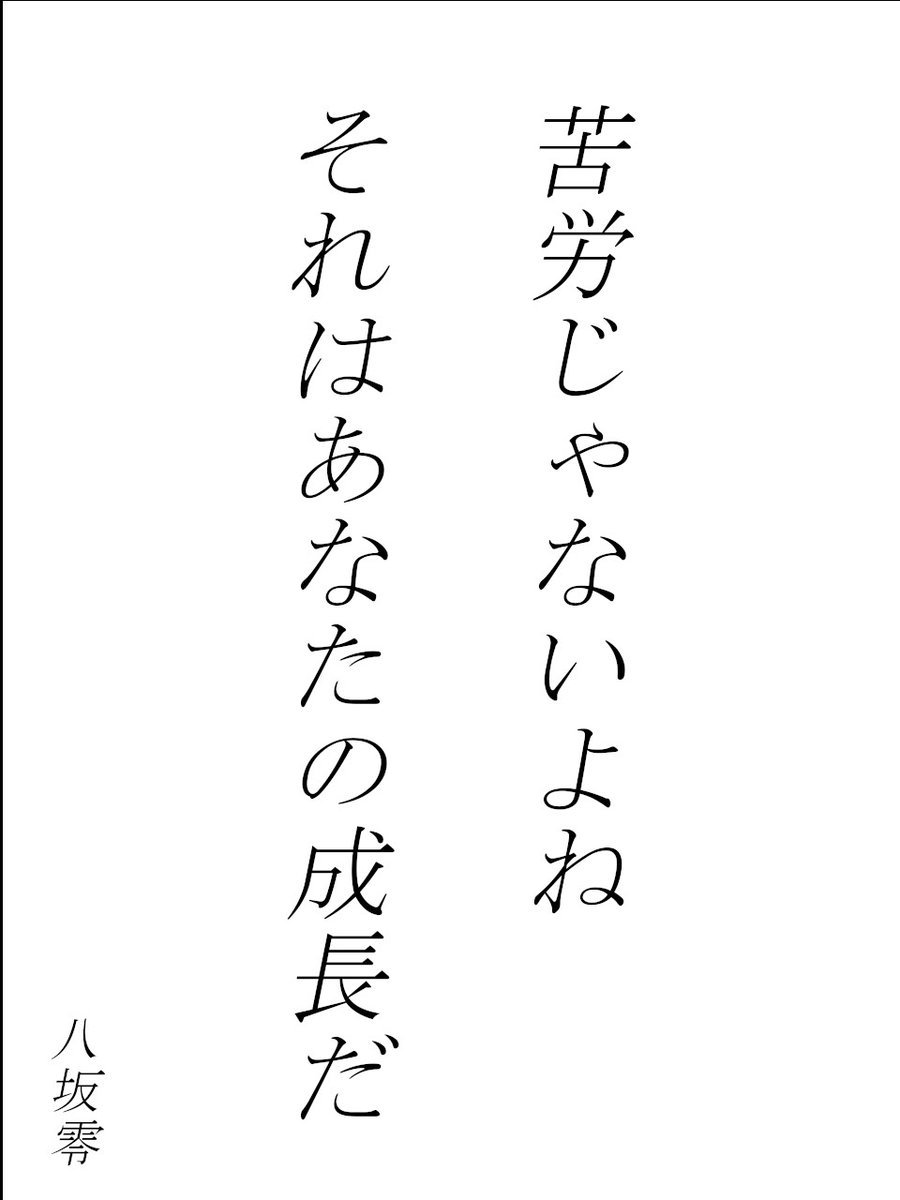 苦労じゃないよね
それはあなたの成長だ
八坂零